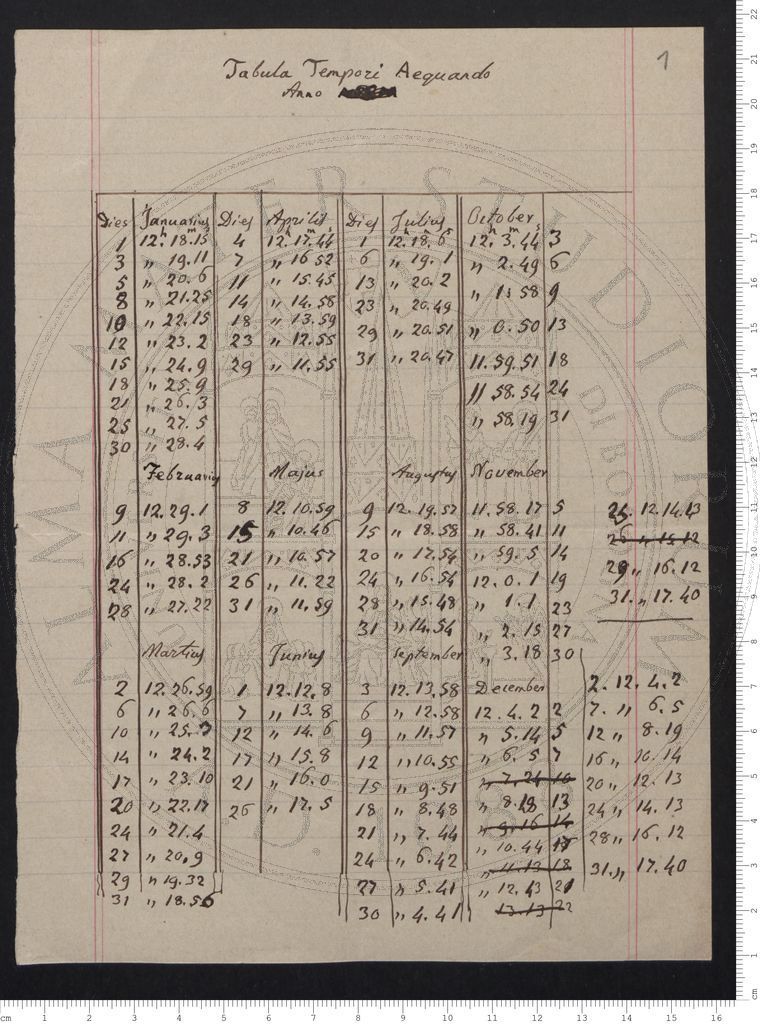 1
Tabula Tempori Aequando
Anno
Dies Januarius Dies Aprilis Dies Julius October
1 12.h 18.m 15s 4 12.h 17.m 44s 1 12.h 18.m 6s 12.h 3.m 44s 3
3 „ 19.11 7 „ 16 52 6 „ 19.1 „ 2.49 6
5 „ 20.6 11 „ 15.45 13 „ 20.2 „ 1.58 9
8 „ 21.25 14 „ 14.58 23 „ 20.49
10 „ 22.15 18 „ 13.59 29 „ 20.51 „ 0.50 13
12 „ 23.2 23 „ 12.55
15 „ 24.9 29 „ 11.55 31 „ 20.47 11.59.51 18
18 „ 25.9 11 58.54 24
21 „ 26.3
25 „ 27.5 „ 58.19 31
30 „ 28.4
Februarius Majus Augustus November
9 12.29.1 8 12.10.59 9 12.19.57 11.58.17 5 25. 12.14.43
11 „ 29.3 15 „ 10.46 15 „ 18.58 „ 58.41 11 26 „ 15.12
16 „ 28.53 21 „ 10.57 20 „ 17.54 „ 59.5 14 29 „ 16.12
24 „ 28.2 26 „ 11.22 24 „ 16.54 12.0.1 19
28 „ 27.22 31 „ 11.59 28 „ 15.48 „ 1.1 23 31. „ 17.40
31 „ 14.54 „ 2.15 27
Martius Junius September „ 3.18 30
2 12.26.59 1 12.12.8 3 12.13.58 December 2. 12.4.2
6 „ 26.6 7 „ 13.8 6 „ 12.58 12.4.2 2 7. „ 6.5
10 „ 25.7 12 „ 14.6 9 „ 11.57 „ 5.14 5 12 „ 8.19
14 „ 24.2 17 „ 15.8 12 „ 10.55 „ 6.5 7 16 „ 10.14
17 „ 23.10 21 „ 16.0 15 „ 9.51 „ 7.24 10 20 „ 12.13
20 „ 22.17 26 „ 17.5 18 „ 8.48 „ 8.18 13 24 „ 14.13
24 „ 21.4 21 „ 7.44 „ 9.16 14 28 „ 16.12
27 „ 20.9 24 „ 6.42 „ 10.44 17
29 „ 19.32 27 „ 5.41 „ 11.13 18 31. „ 17.40
31 „ 18.56 30 „ 4.41 „ 12.43 21
13.13 22